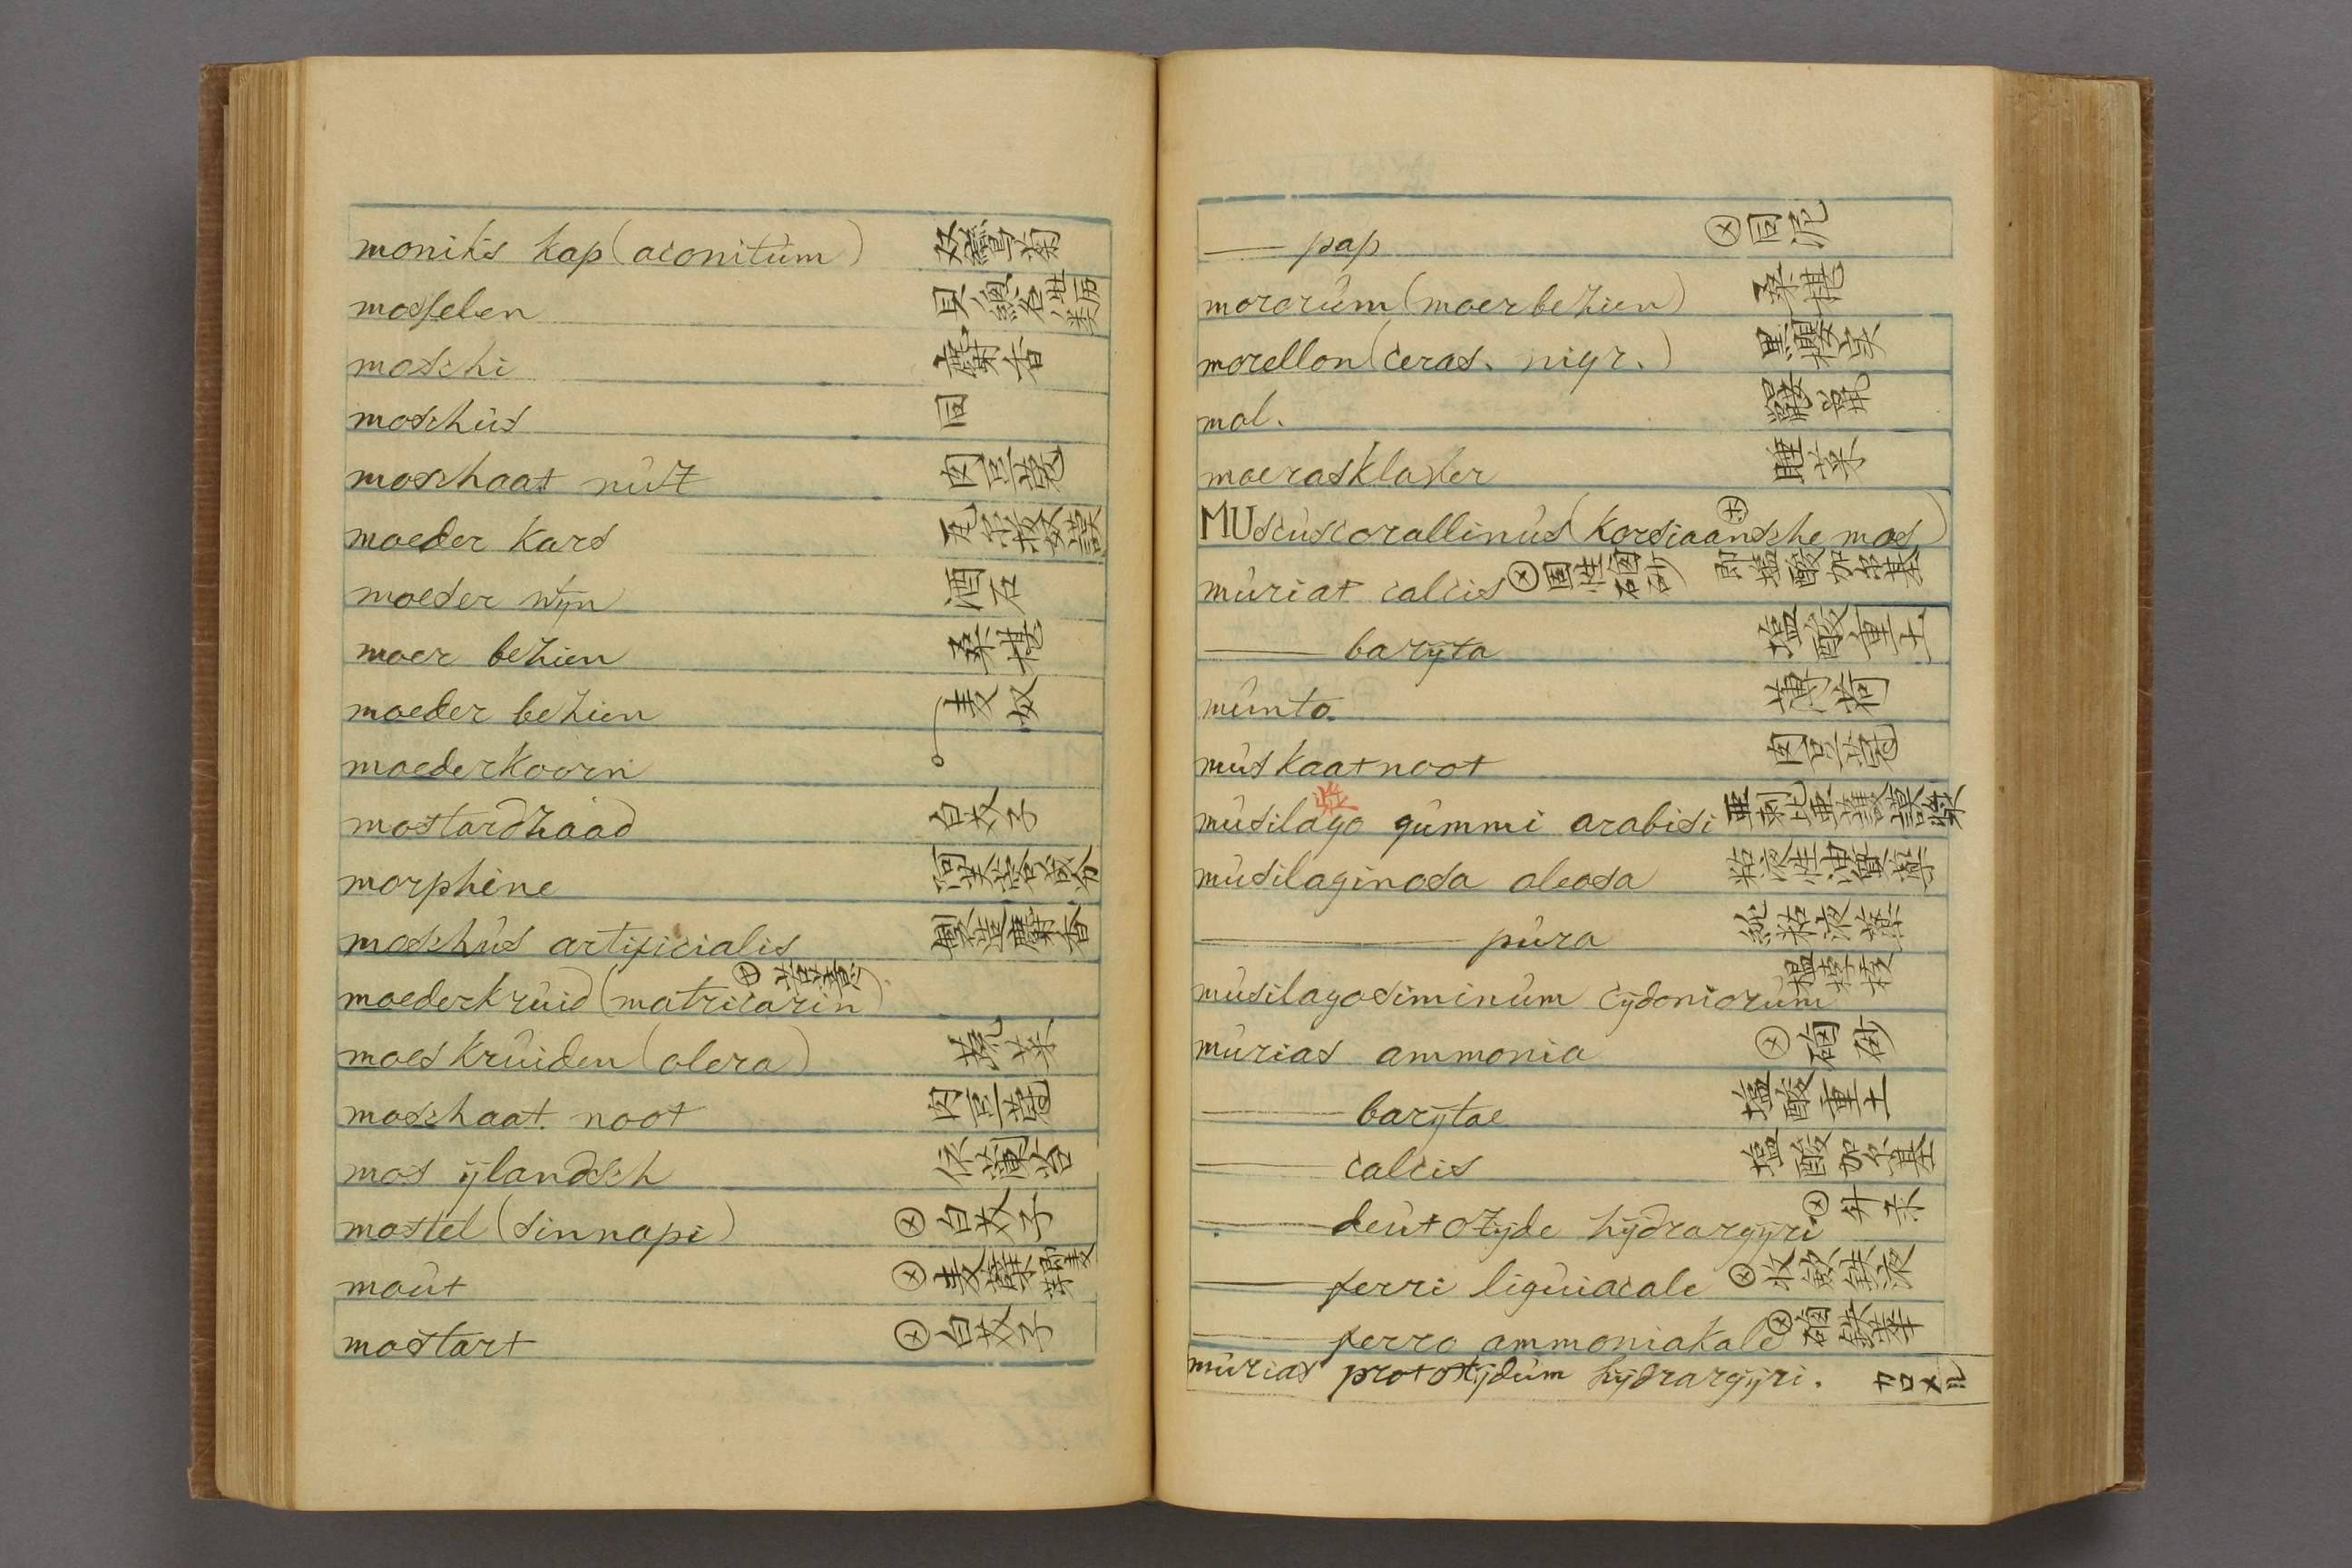 moniks kap (aconitum) 双鸞菊
mosselen 貝総名
moschi 麝香
moschus 同
moschaat nút 肉豆蔲
moeder kars
moeder wÿn 酒石
moer bezien 桑椹
moeder bezien 麦奴
moederkoorn
mostardzaad 白芥子
morphine 阿芙蓉成分
moschús artificialis 製造麝香
moederkrúid (matricarin) ⊕苦薏
moeskrúiden (olera) 蔬菜
moschaat. noot 肉豆蔲
mos ÿlandsch 依蘭苔
mostel (sinnapi) ⊗白芥子
moút ⊗麦蘖
mostart ⊗白芥子
—— pap ⊗同泥
mororúm (moerbezien) 桑椹
morellon (ceras. nigr.) 黒櫻実
mol.
moerasklaver 睡菜
MUscuscorallinús (korsiaansche mos)
múriat calcis ⊗固性硇砂 即塩酸加尓基
—— barÿta 塩酸重土
múnto. 薄荷
múskaatnoot 肉豆蔲
músilago gúmmi arabisi 亜剌比亜護謨漿
músilaginosa oleosa 粘液性油質薬
—— púra 純粘液薬
músilagosiminúm cÿdoniorúm 榲桲
múrias ammonia ⊗硇砂
—— barÿtae 塩酸重土
—— calcis 塩酸加尓基
—— deútozÿde hÿdrargÿri ⊗升汞
—— ferri liquiacale ⊗
—— ferro ammoniakale ⊗硇鉄華
múrias protoxÿdúm hÿdrargÿri. カロメル